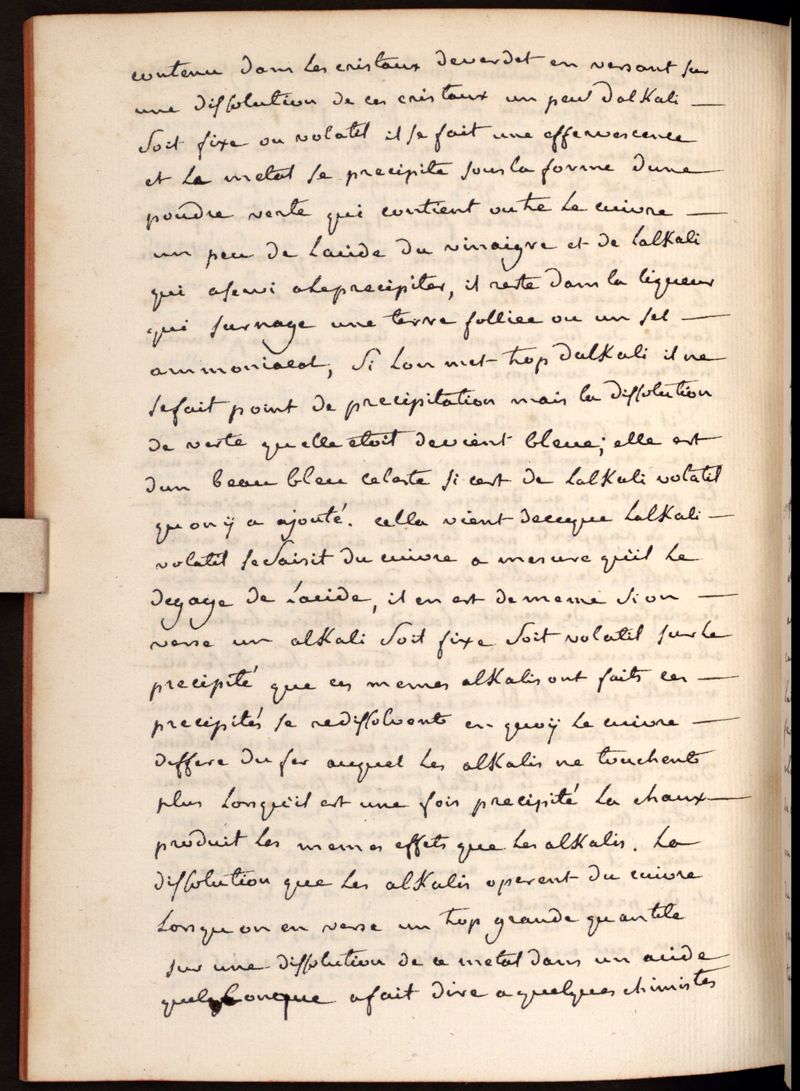 contenu dans les cristaux deverdet en versant sur
une dissolution de ces cristaux un peu dalkali —
soit fixe ou volatil il se fait une effervescence
et le metal se precipite sous la forme dune
poudre verte qui contient outre le cuivre —
un peu de lacide du vinaigre et de lalkali
qui aservi aleprecipiter, il reste dans la liqueur
qui surnage une terre folliee ou un sel —
ammoniacal, si lon met trop dalkali il ne
sefait point de precipitation mais la dissolution
de verte quelle etoit devient bleue; elle est
dun beau bleu celeste si cest de lalkali volatil
quon ÿ a ajouté. cella vient deceque lalkali —
volatil sesaisit du cuivre a mesure quil le
degage de l'acide, il en est de meme si on —
verse un alkali soit fixe soit volatil sur le
precipité que ces memes alkalis ont faits ces —
precipités se redissolvents en quoÿ le cuivre —
differe du fer auquel les alkalis ne touchents
plus lorsquil est une fois precipité la chaux —
produit les memes effets que les alkalis. La
dissolution que les alkalis operent du cuivre
lorsquon en verse un trop grande quantite
sur une dissolution de ce metal dans un acide
quelconque a fait dire a quelques chimistes